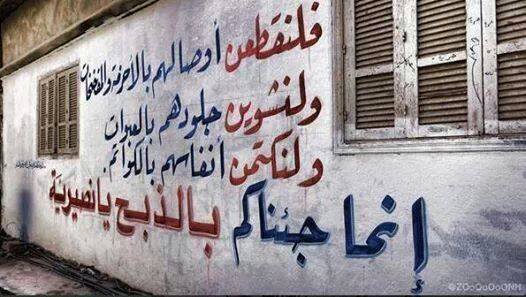 فلنقطعن أوصالهم بالأحزمة والمفخخات
ولنشوين جلودهم بالعبوات
ولنكتمن أنفاسهم بالكواتم
إنما جئناكم بالذبح يا نصيرية